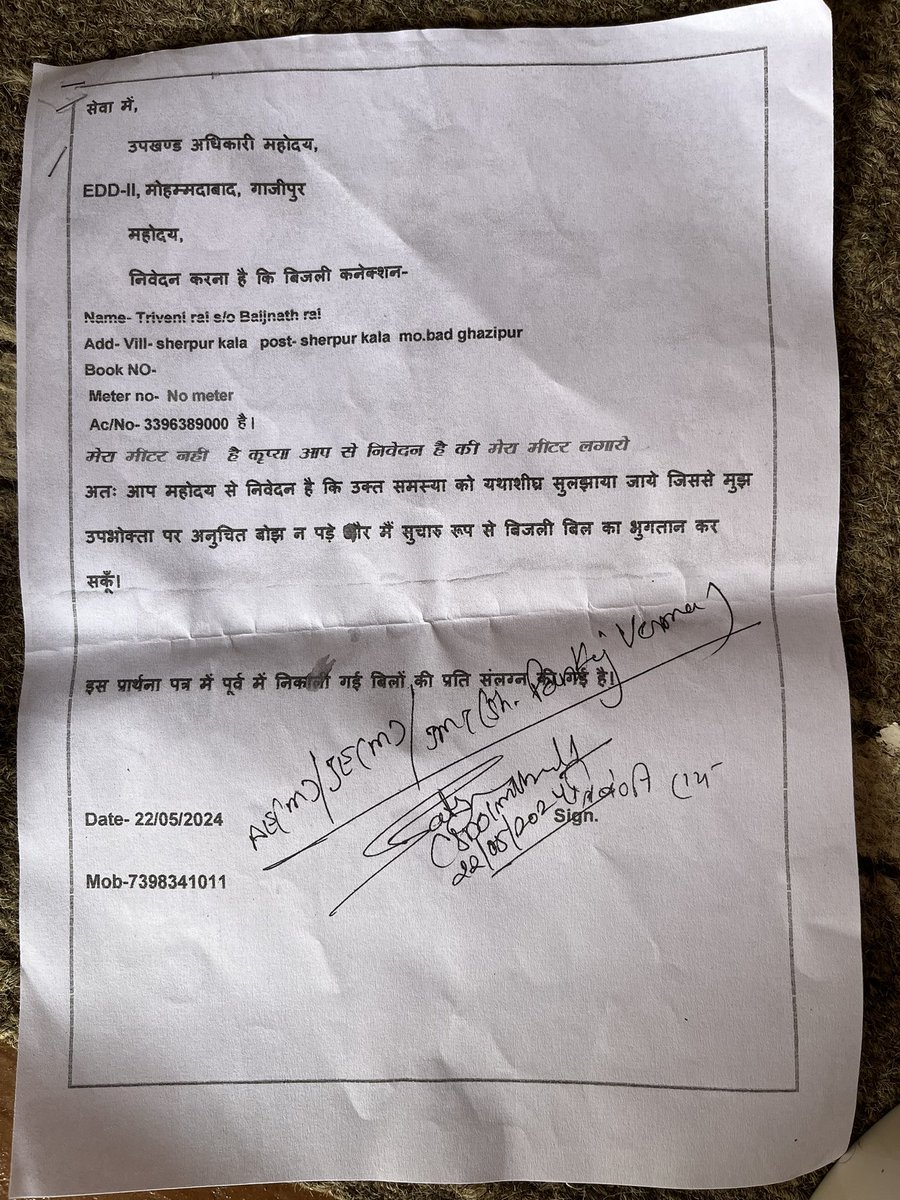 सेवा में,
उपखण्ड अधिकारी महोदय,
EDD-II, मोहम्मदाबाद, गाजीपुर
महोदय,
निवेदन करना है कि बिजली कनेक्शन-
Name- Triveni rai s/o Baijnath rai
Add- Vill- sherpur kala post- sherpur kala mo.bad ghazipur
Book NO-
Meter no- No meter
Ac/No- 3396389000 है।
मेरा मीटर नहीं है कृप्या आप से निवेदन है की मेरा मीटर लगाये
अतः आप महोदय से निवेदन है कि उक्त समस्या को यथाशीघ्र सुलझाया जाये जिससे मुझ
उपभोक्ता पर अनुचित बोझ न पड़े और मैं सुचारु रूप से बिजली बिल का भुगतान कर
सकूँ।
इस प्रार्थना पत्र में पूर्व में निकाली गई बिलों की प्रति संलग्न की गई है।
AE(M)/JE(M)/
Verma)
Date- 22/05/2024
22/05/2024
Sign.
Mob-7398341011